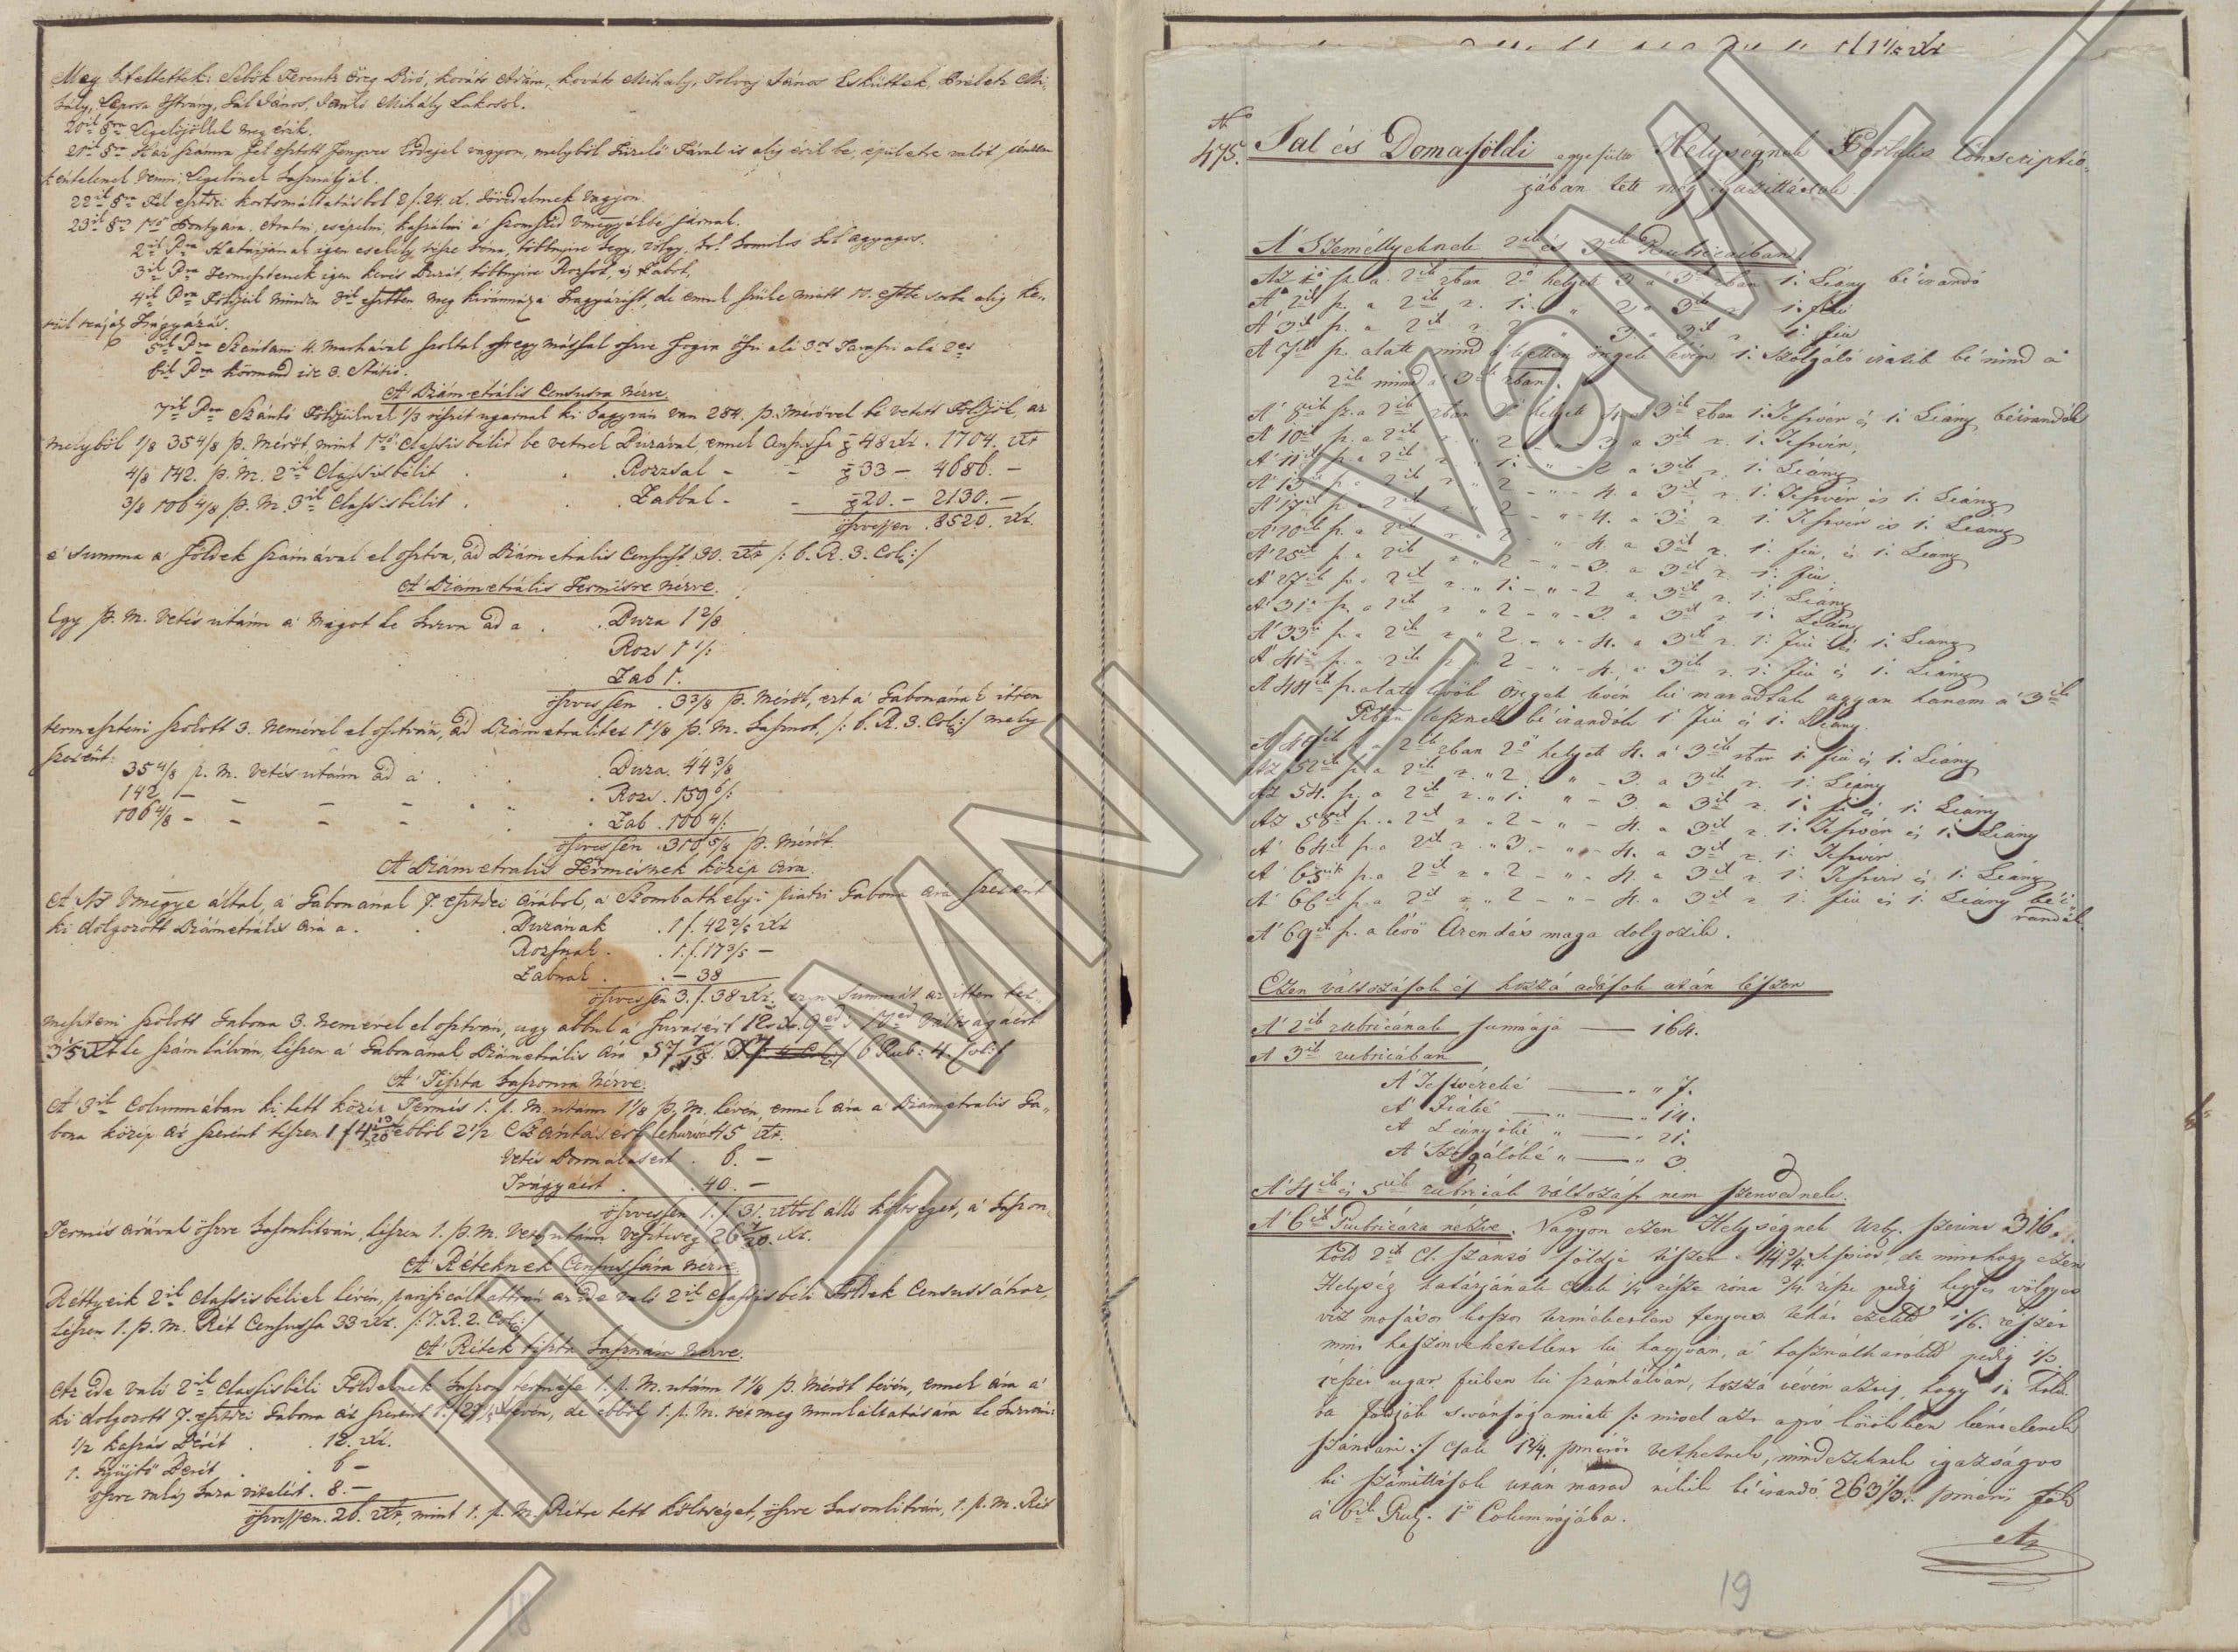 Meg hiteltettek: Sebők Ferentz Öreg Biró, Kováts Ádám, Kováts Mihály, Tolvaj János Esküttek, Mi-
hály, István, Gál János, Jankó Mihály Lakosok.
20ik §ra Legelőjökkel meg érik.
21ik §ra Ház számra fel osztott fenyves Erdejek vagyon, melyből Tüzelő Fával is alig érik be, epületre valót pénzen
kéntelenek venni, Legelőnek használják.
22ik §ra Fél esztei kortsmáltatásbol 2 f. 24. x. Jövedelmek vagyon.
23ik §ra 1ső Pontyára. Aratni, csépelni, kaszálni a szomszéd Vmegyékbe járnak.
2ik Pra Határjának igen csekély része róna, többnyire hegy, völgy, hol homokos hol agyagos.
3ik Pra Termesztenek igen kevés Buzát, többnyire Rozsot, és Zabot.
4ik Pra Földjeik minden 3ik esztben meg kivánnája Trágyázást, de ennek szüke miatt 10. eszte sorba alig ke-
rül reájok Trágyázás.
5ik Pra Szántani 4. Marhával szoktak egy mással öszve fogva Öszi alá 3or Tavaszi alá 2er
6ik Pra Körmend ide 3. Státió.
A Diámetrális Censusra Nézve.
7ik Pra Szántó Földjeiknek 1/3 részit ugarnak ki hagyván van 284. p. Mérővel bé vetett Földjök, az
melyböl 1/8 35 4/8 p. Mérőt, mint 1ső Classisbélit be vetnek Buzával, ennek Censussa á 48 xr. 1704. xr
4/8 142. p. M. 2ik Classisbélit . . Rozzsal - - á 33 - 4686. -
3/8 106 4/8 p. M. 3ik Classisbélit . . Zabbal - - á 20. - 2130. -
öszvessen . 8520. xr.
e' Summa a' földek számával el osztva, ád Diámetralis Censust 30. xr /: 6. R. 3. Col: /
A' Diámetrális Termésre Nézve.
Egy p. M. vetés utánn a' Magot le huzva ád a . . Buza 1 2/8
Rozs 1 1/:
Zab 1.
öszvessen . 3 3/8 p. Mérőt, ezt a' Gabonának itten
termeszteni szokott 3. Nemével el osztván, ád Diámetralitert 1 1/8 p. M. hasznot, /: 6. R. 3. Col: / mely
szerént:
35 4/8 p. M. vetés utánn ád a' . . Buza. 44 3/8
142 - - - - . . Rozs . 159 6/:
106 4/8 - - - - . . Zab . 106 4/:
öszvessen . 310 5/8 p. Mérőt.
A Diámetralis Termésnek közép Ára.
A Ns Vmegye által, a' Gabonának 7. esztdei árából, a' Szombathelyi piatzi Gabona Ára szerént
ki dolgozott Diámetrális Ára a . . Buzának . 1 f. 42 2/5 xr
Rozsnak . . 1 f. 17 3/5 -
Zabnak . . - 38
öszvessen 3. f. 38 xr. ezen Summát az itten ter-
meszteni szokott Gabona 3. Nemével el osztván, ugy abbul a'
számlálván, lészen a' Gabonának Diámetrális Ára 57 6 Rub: 4. Col:/
A' Tiszta haszonra Nézve.
A' 3ik Columnában ki tett közép Termés 1. p. M. utánn 1 1/8 p. M. lévén, ennek ára a' Diametralis Ga-
bona közép ár szerént lészen 1 f 4 ebböl 2 1/2 Szántásért lehuzván 45 xr.
Vetés Boronálásért . 6. -
Trágyáért . 40. -
öszvessen 1. f. 31. xrból álló költséget, a' haszon
Termés árával öszve hasonlitván, lészen 1. p. M. Vetés utánn vesztesség 26 xr.
A' Réteknek Censussára Nézve.
Réttyeik 2ik Classisbéliek lévén, az ide való 2ik Classisbéli Földek Censussához,
lészen 1. p. M. Rét Censussa 33 xr. /: 7. R. 2. Col: /
A' Rétek tiszta hasznára Nézve.
Az ide való 2ik Classisbéli Földeknek haszon termése 1. p. M. utánn 1 1/8 p. Mérőt lévén, ennek ára a'
ki dolgozott 7. esztdei Gabona ár szerént lévén, de ebböl 1. p. M. rét meg munkáltatására le huzván:
1/2 kaszás Bérét . . 12. xr.
1. Gyüjtő Bérét . . 6 -
öszve rakás haza vitelét . 8. -
öszvessen. 26. xr, mint 1. p. M. Rétre tett költséget, öszve hasonlitván, 1. p. M. Rét
No
475. Tal és Domaföldi egyesült Helységnek Portalis Conscriptio-
jában tett meg igazittások.
A' Személlyeknek 2ik és 3ik Rubricaiban
Az 1ő p. a 2ik rban 2ő helyett 3 a' 3ik rban 1. Leány béirandó
A' 2ik p. a 2ik r. 1. " 2 a 3ik r 1. fiu
A' 3ik p. a 2ik r. 2 " 3. a 3ik r 1. fiu
A 7ik p. alatt mind a' ketten öregek lévén 1. Szolgáló iratik bé mind a'
2ik mind a' 3ik rban.
A' 8ik p. a 2ik rban 2ő helyett 4. a 3ik rban 1. Testvér és 1. Leány béirandók
A 10ik p. a 2ik r " 2 - " - 3 a 3ik r. 1. Testvér,
A' 11ik p. a 2ik r. " 1. - " - 2 a' 3ik r. 1. Leány
A' 13ik p. a 2ik r. " 2 - " - 4. a 3ik r. 1. Testvér és 1. Leány
A' 17ik p. a 2ik r. " 2 - " - 4. a' 3ik r. 1. Testvér és 1. Leany
A' 20ik p. a 2ik r " 2 - " 4. a 3ik r. 1. fiu, és 1. Leany
A' 25ik p. a 2ik r " 2 - " - 3. a 3ik r. 1. fiu.
A' 27ik p. a 2ik r. " 1. - " - 2 a. 3ik r. 1. Leány
A' 31ő p. a 2ik r " 2 - " - 3. a 3ik r 1. Leány
A' 33ik p. a 2ik r " 2. - " - 4. a 3ik r. 1. fiu és 1. Leany
A' 41ő p. a 2ik r. " 2 - " - 4. a 3ik r. 1. fiu és 1. Leány
A 44ik p. alatt lévők öregek lévén ki maradtak ugyan hanem a' 3ik
lesznek béirandók 1 fiu és 1. Leány.
A 46ik p. a 2ik rban 2ő helyett 4. a' 3ik rban 1. fiu és 1. Leány
Az 52ik p. a 2ik r. " 2 " - 3. a 3ik r. 1. Leány
Az 54. p. a 2ik r. " 1. " - 3. a 3ik r. 1. fi és 1. Leány
Az 58ik p. a 2ik r " 2 - " - 4. a 3ik r. 1. Testvér és 1. Leány
A' 64ik p. a 2ik r. " 3. - " - 4. a 3ik r. 1. Testvér
A' 65ik p. a 2ik r " 2 - " - 4. a 3ik r. 1. Testvér és 1. Leány
A' 66ik p. a 2ik r " 2 - " - 4. a 3ik r 1. fiu és 1. Leány béi-
randók.
A' 69ik p. a lévő Arendás maga dolgozik.
Ezen változások és hozzá adások után lészen
A' 2ik rubricának summája — 164.
A 3ik rubricában
A' Testvéreké — " 7.
A' Fiaké — " — 14.
A Leányoké " — " 21.
A' Szolgálóké " — " 3.
A' 4ik és 5ik rubricák változást nem szenvednek.
A' 6ik Rubricára nézve. Vagyon ezen Helységnek Urb. szerint 316.
hold 2ik Cl. szántó földje tészen 14 3/4 Sessiót, de mint hogy ezen
Helység határjának csak 1/4 része róna 3/4. része pedig hegyes völgyes
viz mosásos rossz terméketlen fenyves tehát ezekből 1/6. részét
mint haszonvehetetlent ki hagyván, a' használhatóból pedig 1/3
részét ugar fejiben ki számlálván, hozzá vévén aztis, hogy 1.
földjök miatt /: mivel azt apró kintelenek
szántani :/ csak 1 2/4. pmérőt vethetnek, mindezeknek igazságos
ki számittások után marad nékik béirandó 263 1/3. pmérős föld
a' 6ik Rub. 1ő Columnájába.
Az
19
18
HU MNL VaML